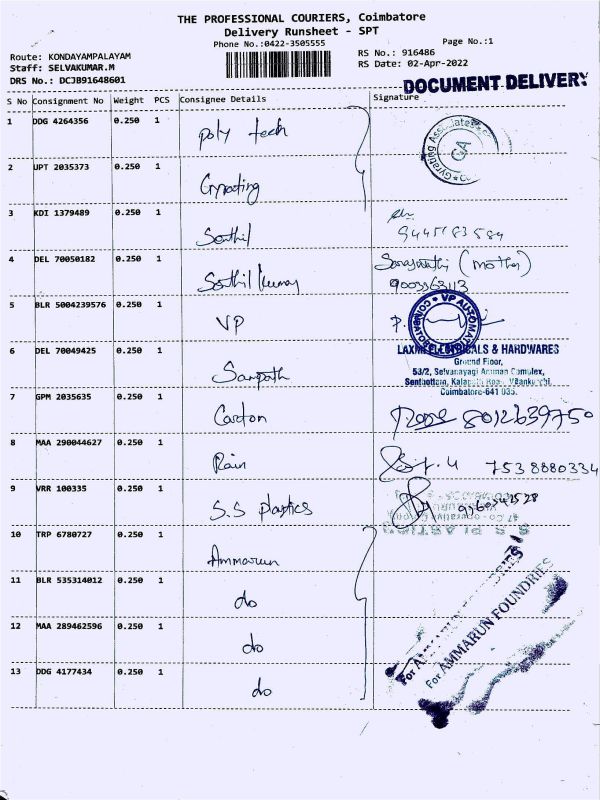 THE PROFESSIONAL COURIERS, Coimbatore
Delivery Runsheet - SPT
Phone No.:0422-3505555
Page No.:1
Route: KONDAYAMPALAYAM
Staff: SELVAKUMAR.M
DRS No.: DCJB91648601
RS No.: 916486
RS Date: 02-Apr-2022
DOCUMENT DELIVERY
S No Consignment No Weight PCS Consignee Details Signature
1 DDG 4264356 0.250 1 Poly tech
Gyrating Associates
GA
2 UPT 2035373 0.250 1 Gyrating
3 KDI 1379489 0.250 1 Senthil
4 DEL 70050182 0.250 1 Senthil kumar (Mother)
5 BLR 5004239576 0.250 1 VP
VP AUTOMA
6 DEL 70049425 0.250 1 Sampath
LAXMI ELECTRICALS & HARDWARES
Ground Floor,
53/2, Selvanayagi Complex,
Coimbatore-641 035.
7 GPM 2035635 0.250 1 Carton 8012639750
8 MAA 290044627 0.250 1 Rain 7538880334
9 VRR 100335 0.250 1 S.S plastics
S S PLASTICS
10 TRP 6780727 0.250 1 Ammarun
11 BLR 535314012 0.250 1 do
12 MAA 289462596 0.250 1 do
13 DDG 4177434 0.250 1 do
For AMMARUN FOUNDRIES
For AMMARUN FOUNDRIES